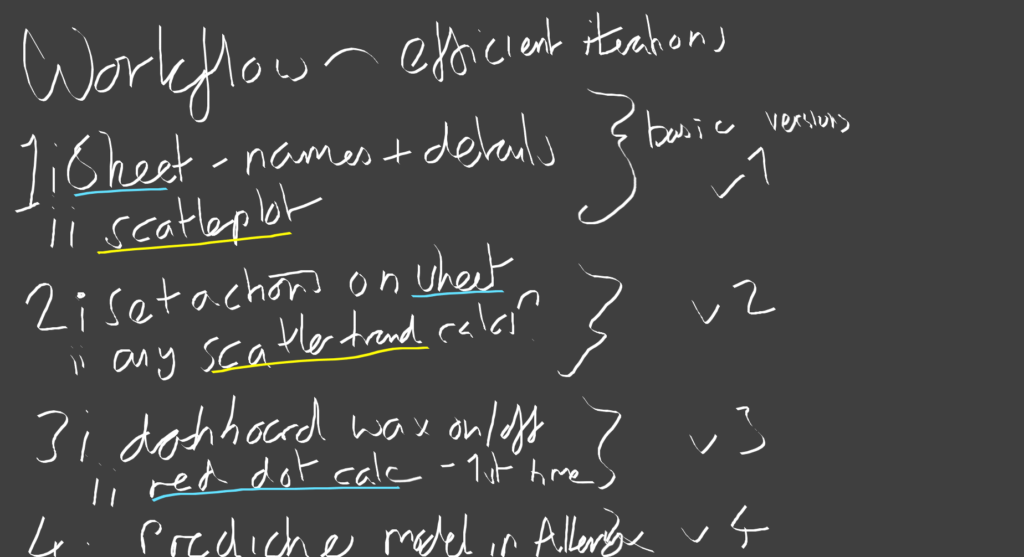 Workflow - efficient iterations
1 i Sheet - names + details
ii scatterplot
basic versions
v1
2 i set actions on sheet
ii any scatter trend calcs
v2
3 i dashboard wax on/off
ii red dot calc - 1st time
v3
4. Predictive model in Alteryx
v4